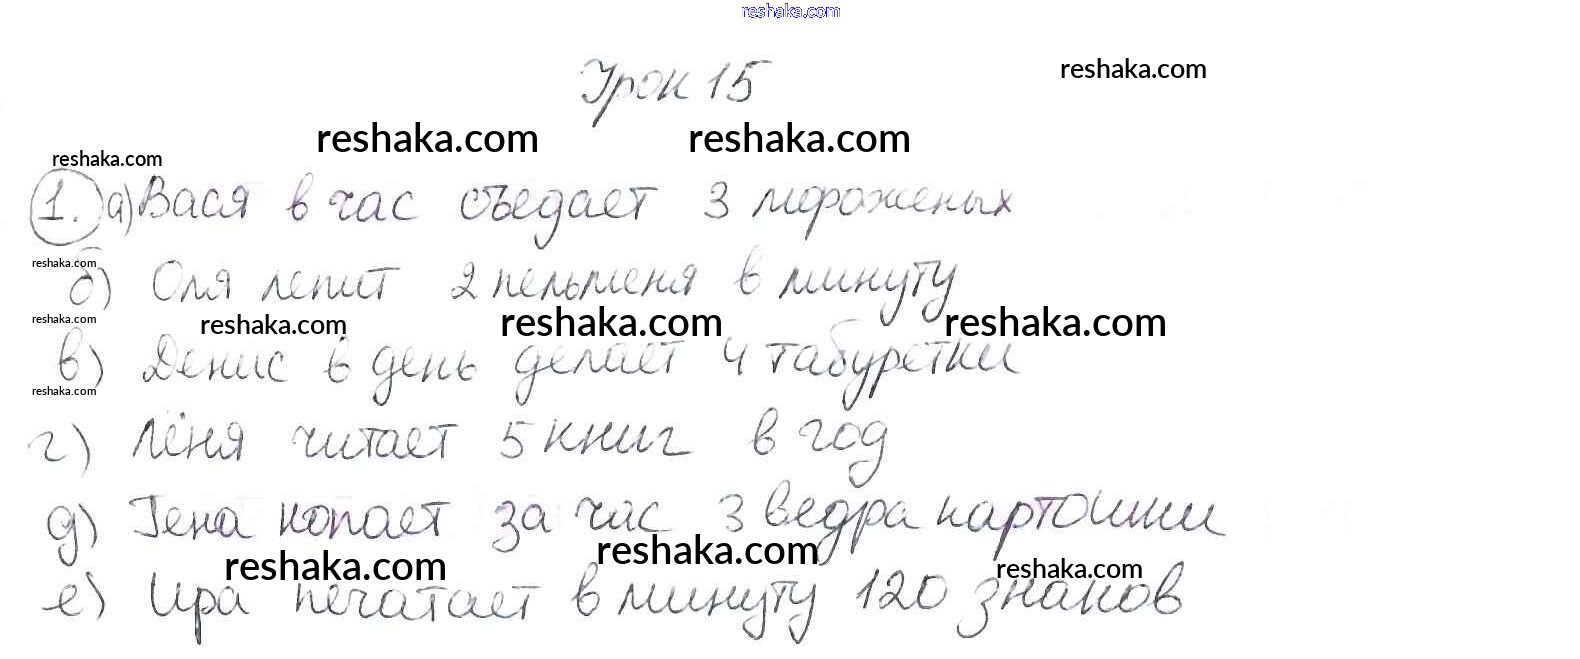 reshaka.com
Урок 15
reshaka.com
reshaka.com reshaka.com
reshaka.com
1. а) Вася в час съедает 3 мороженых
reshaka.com
б) Оля лепит 2 пельменя в минуту
reshaka.com
reshaka.com reshaka.com reshaka.com
в) Денис в день делает 4 табуретки
reshaka.com
г) Лёня читает 5 книг в год
д) Гена копает за час 3 ведра картошки
reshaka.com reshaka.com reshaka.com
е) Ира печатает в минуту 120 знаков